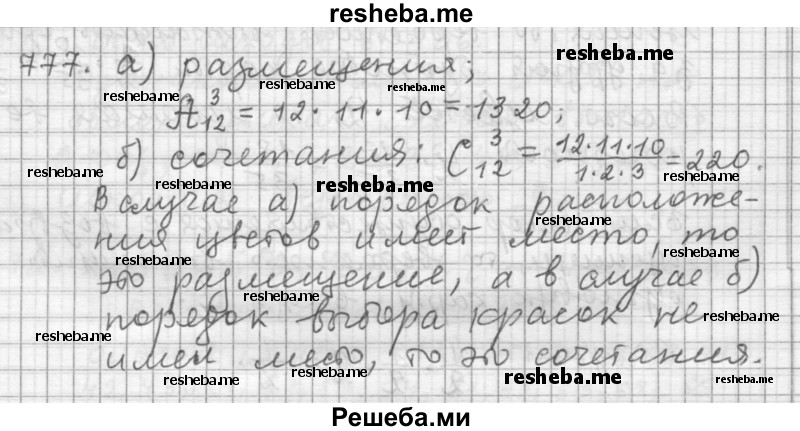 resheba.me
777. а) размещения; resheba.me
resheba.me resheba.me resheba.me
A³₁₂ = 12·11·10 = 1320;
б) сочетания: C³₁₂ = 12·11·10 / 1·2·3 = 220.
resheba.me resheba.me resheba.me
В случае а) порядок расположе-
resheba.me
ния цветов имеет место, то
resheba.me resheba.me
это размещение, а в случае б)
resheba.me
порядок выбора красок не
resheba.me resheba.me
имеи место, то это сочетания.
resheba.me resheba.me resheba.me resheba.me
Решеба.ми